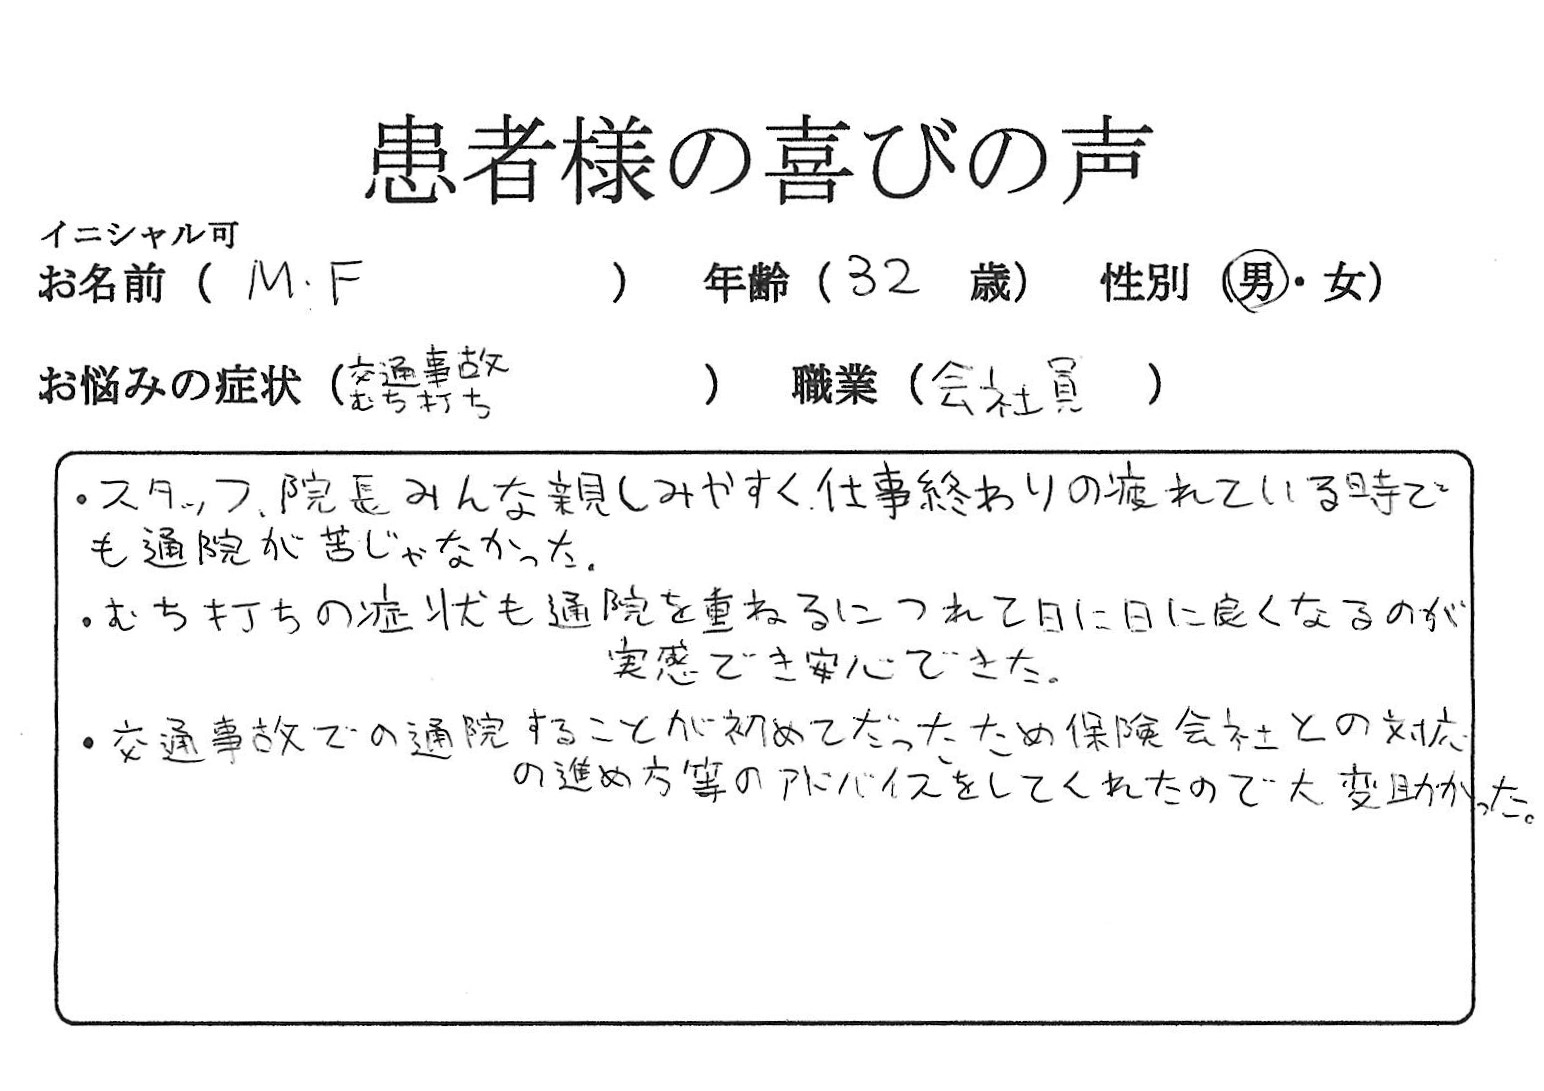 患者様の喜びの声
イニシャル可
お名前（ M.F ） 年齢（32 歳） 性別（男・女）
お悩みの症状（交通事故 むち打ち ） 職業（会社員 ）
・スタッフ、院長みんな親しみやすく、仕事終わりの疲れている時で
も通院が苦じゃなかった。
・むち打ちの症状も通院を重ねるにつれて日に日に良くなるのが
実感でき安心できた。
・交通事故での通院することが初めてだったため保険会社との対応
の進め方等のアドバイスをしてくれたので大変助かった。